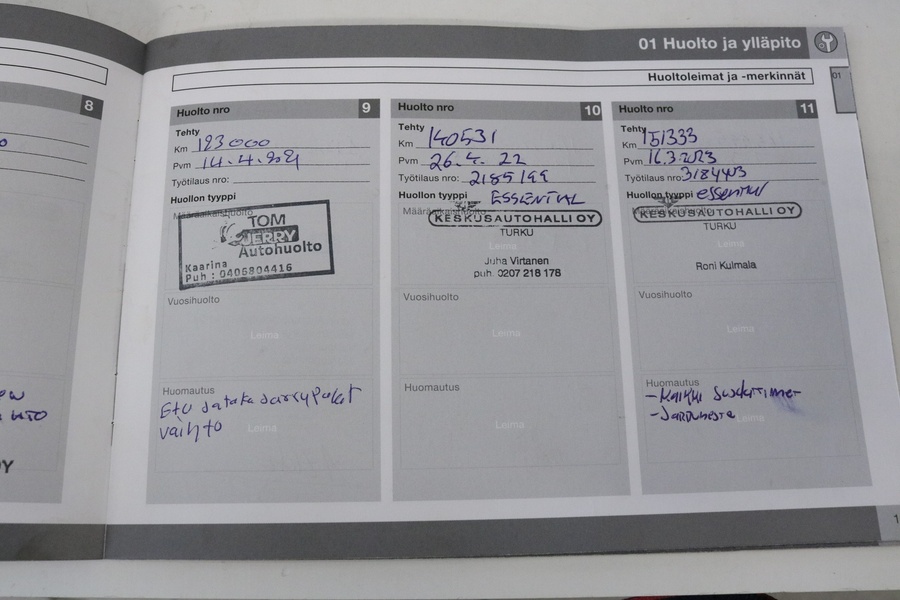 01 Huolto ja ylläpito
01
Huoltoleimat ja -merkinnät
8
Huolto nro 9
Tehty
Km 123000
Pvm 14.4.2021
Työtilaus nro:
Huollon tyyppi
Määräaikaishuolto
TOM
JERRY
Autohuolto
Kaarina
Puh : 0406804416
Vuosihuolto
Leima
Huomautus
Etu ja taka jarrypalat
vaihto
Leima
Huolto nro 10
Tehty
Km 140531
Pvm 26.4.22
Työtilaus nro: 2185199
Huollon tyyppi ESSENTIAL
Määräaikaishuolto
KESKUSAUTOHALLI OY
TURKU
Leima
Juha Virtanen
puh. 0207 218 178
Vuosihuolto
Leima
Huomautus
Leima
Huolto nro 11
Tehty
Km 151333
Pvm 16.3.2023
Työtilaus nro: 3184403
Huollon tyyppi essential
KESKUSAUTOHALLI OY
TURKU
Leima
Roni Kulmala
Vuosihuolto
Leima
Huomautus
- Kaikki suodattimet
- Jarruneste
Leima